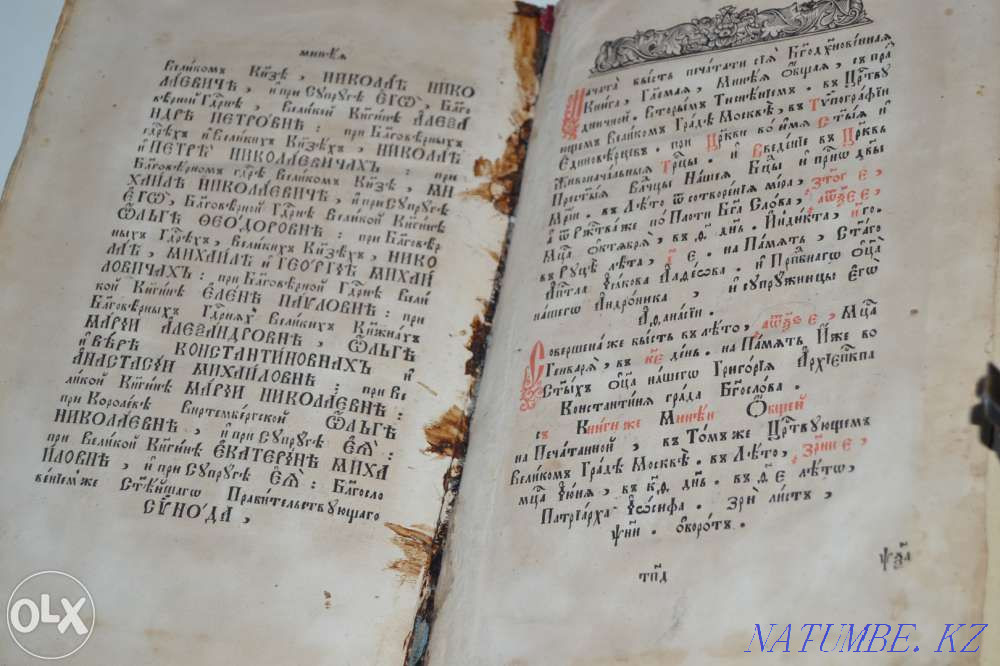 минея
Вели́комъ Кн҃зѣ, НИКОЛА́Ѣ НИКО
ЛА́ЕВИЧѢ, и҆ при СꙋПРꙋГѢ Е҆ГѠ̀, Бл҃го
вѣ́рной Гдⷭ҇рнѣ, Вели́кой Кн҃ги́нѣ АЛЕѮА́
НДРѢ ПЕТРО́ВНѢ: при Бл҃говѣ́рныхъ
гдⷭ҇рѣхъ и҆ Вели́кихъ Кн҃зѣхъ, НИКОЛА́Ѣ
и҆ ПЕТРѢ̀ НИКОЛА́ЕВИЧАХЪ: при
Бл҃говѣ́рномъ гдⷭ҇рѣ Вели́комъ Кн҃зѣ, МИ
ХАИ́ЛѢ НИКОЛА́ЕВИЧѢ, и҆ при СꙋПРꙋГѢ
Е҆ГѠ̀, Бл҃говѣ́рной Гдⷭ҇рнѣ Вели́кой Кн҃ги́нѣ
Ѻ҆́ЛЬГѢ ѲЕО́ДОРОВНѢ: при Бл҃говѣр
ныхъ Гдⷭ҇рѣхъ, Вели́кихъ Кн҃зѣхъ, НИКО
ЛА́Ѣ, МИХАИ́ЛѢ и҆ ГЕѠ́РГІѢ МИХАИ
ЛОВИЧАХЪ: при Бл҃говѣ́рной Гдⷭ҇рнѣ Вели
кой Кн҃ги́нѣ Е҆ЛЕ́НѢ ПА́ѴЛОВНѢ: при
Бл҃говѣ́рныхъ Гдⷭ҇рняхъ Вели́кихъ Кн҃жна́хъ
МАРІ́И АЛЕѮА́НДРОВНѢ, Ѻ҆́ЛЬГѢ
и҆ ВѢ́РѢ КОНСТАНТИ́НОВНАХЪ и҆
АНАСТАСІ́И МИХАИ́ЛОВНѢ: при Ве
ли́кой Кн҃ги́нѣ МАРІ́И НИКОЛА́ЕВНѢ:
при Короле́вѣ Виртемб́ергской Ѻ҆́ЛЬГѢ
НИКОЛА́ЕВНѢ, и҆ при СꙋПРꙋГѢ Е҆Ѧ̀:
при Вели́кой Кн҃ги́нѣ Е҆КАТЕРИ́НѢ МИХА
И́ЛОВНѢ, и҆ при СꙋПРꙋГѢ Е҆Ѧ̀: Бл҃госло
ве́ніемже Ст҃ѣ́йшагѡ Прави́тельствꙋющагѡ
СѴНО́ДА,
Нача́та бы́сть печа́тати сїѧ̀ Бг҃одꙋхнове́ннаѧ
Кни́га, Гл҃емаѧ, Мине́ѧ Ѻ҆́бщаѧ, съ пра́
здничной. Вторы́мъ Тисне́нїемъ. въ Црⷭ҇твꙋ
ющемъ Вели́комъ Гра́дѣ Москвѣ̀, въ Тѵпогра́фїи
Е҆диновѣ́рцевъ. при Цр҃кви во и҆́мѧ Ст҃ы́ѧ и҆
Живонача́льныѧ Трⷪ҇цы. и҆ Введе́нїе въ Цр҃ковь
Прест҃ы́ѧ Влⷣчцы На́шеѧ Бц҃ы и҆ приⷭ҇нѡ дв҃ы
Мр҃їи. въ Лѣ́то ѿ сотворе́нїѧ мі́ра,
а҆ ѿ Ржⷭ҇тва́же по Пло́ти Бг҃а Сло́ва,
Мцⷭ҇а Ѻ҆ктѧ́брѧ, въ д҃ дн҃ь. И҆нди́кта, і҆ го.
въ рꙋцѣ̀ лѣ́та, Е. на Па́мѧть, Ст҃а́го
А҆пⷭ҇тла І҆а́кова А҆лфе́ова. и҆ Прⷣбнагѡ Ѻ҆ц҃а̀
на́шегѡ А҆ндро́ника, и҆ сꙋпрꙋ́жницы Е҆гѡ̀
А҆ѳана́сїи.
Соверше́на же бы́сть въ лѣ́то, Мцⷭ҇а
Генва́рѧ, въ к҃е де́нь. на Па́мѧть И҆́же во
Ст҃ы́хъ Ѻ҆ц҃а̀ на́шегѡ Григо́рїѧ А҆рхїепⷭ҇кпа
Константи́нѧ гра́да Бг҃осло́ва.
съ Кни́ги же Мине́и Ѻ҆́бщей
на Печа́танной, въ То́мъ же Црⷭ҇твꙋющемъ
Вели́комъ Гра́дѣ Москвѣ̀. въ Лѣ́то,
мцⷭ҇а І҆ю́нѧ, въ к҃д дн҃ь. въ д҃ Е лѣ́то,
Патрїа́рха І҆ѡ́сифа. Зрѝ ли́стъ,
ѱ҃ни. ѻ҆боро́тъ.
тп҃д
OLX
NATUMBE. KZ